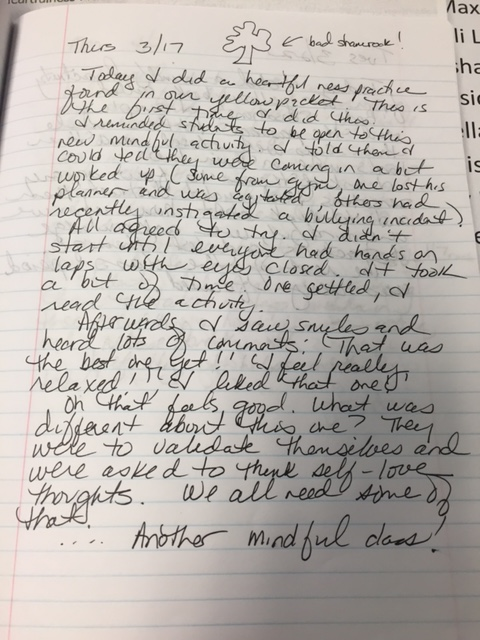 Max
li L
sha
sid
ella
is
Thurs 3/17 ← bad shamrock!
Today I did a heartfulness practice
found in our yellow packet. This is
the first time I did this.
I reminded students to be open to this
new mindful activity. I told them I
could tell they were coming in a bit
worked up (some from gym, one lost his
planner and was agitated, others had
recently instigated a bullying incident).
All agreed to try. I didn't
start until everyone had hands on
laps with eyes closed. It took
a bit of time. One settled, I
read the activity.
Afterwards, I saw smiles and
heard lots of comments: "That was
the best one yet!! "I feel really
relaxed!", "I liked that one!"
Oh that feels good. What was
different about this one? They
were to validate themselves and
were asked to think self-love
thoughts. We all need some of
that!
.... Another mindful class!